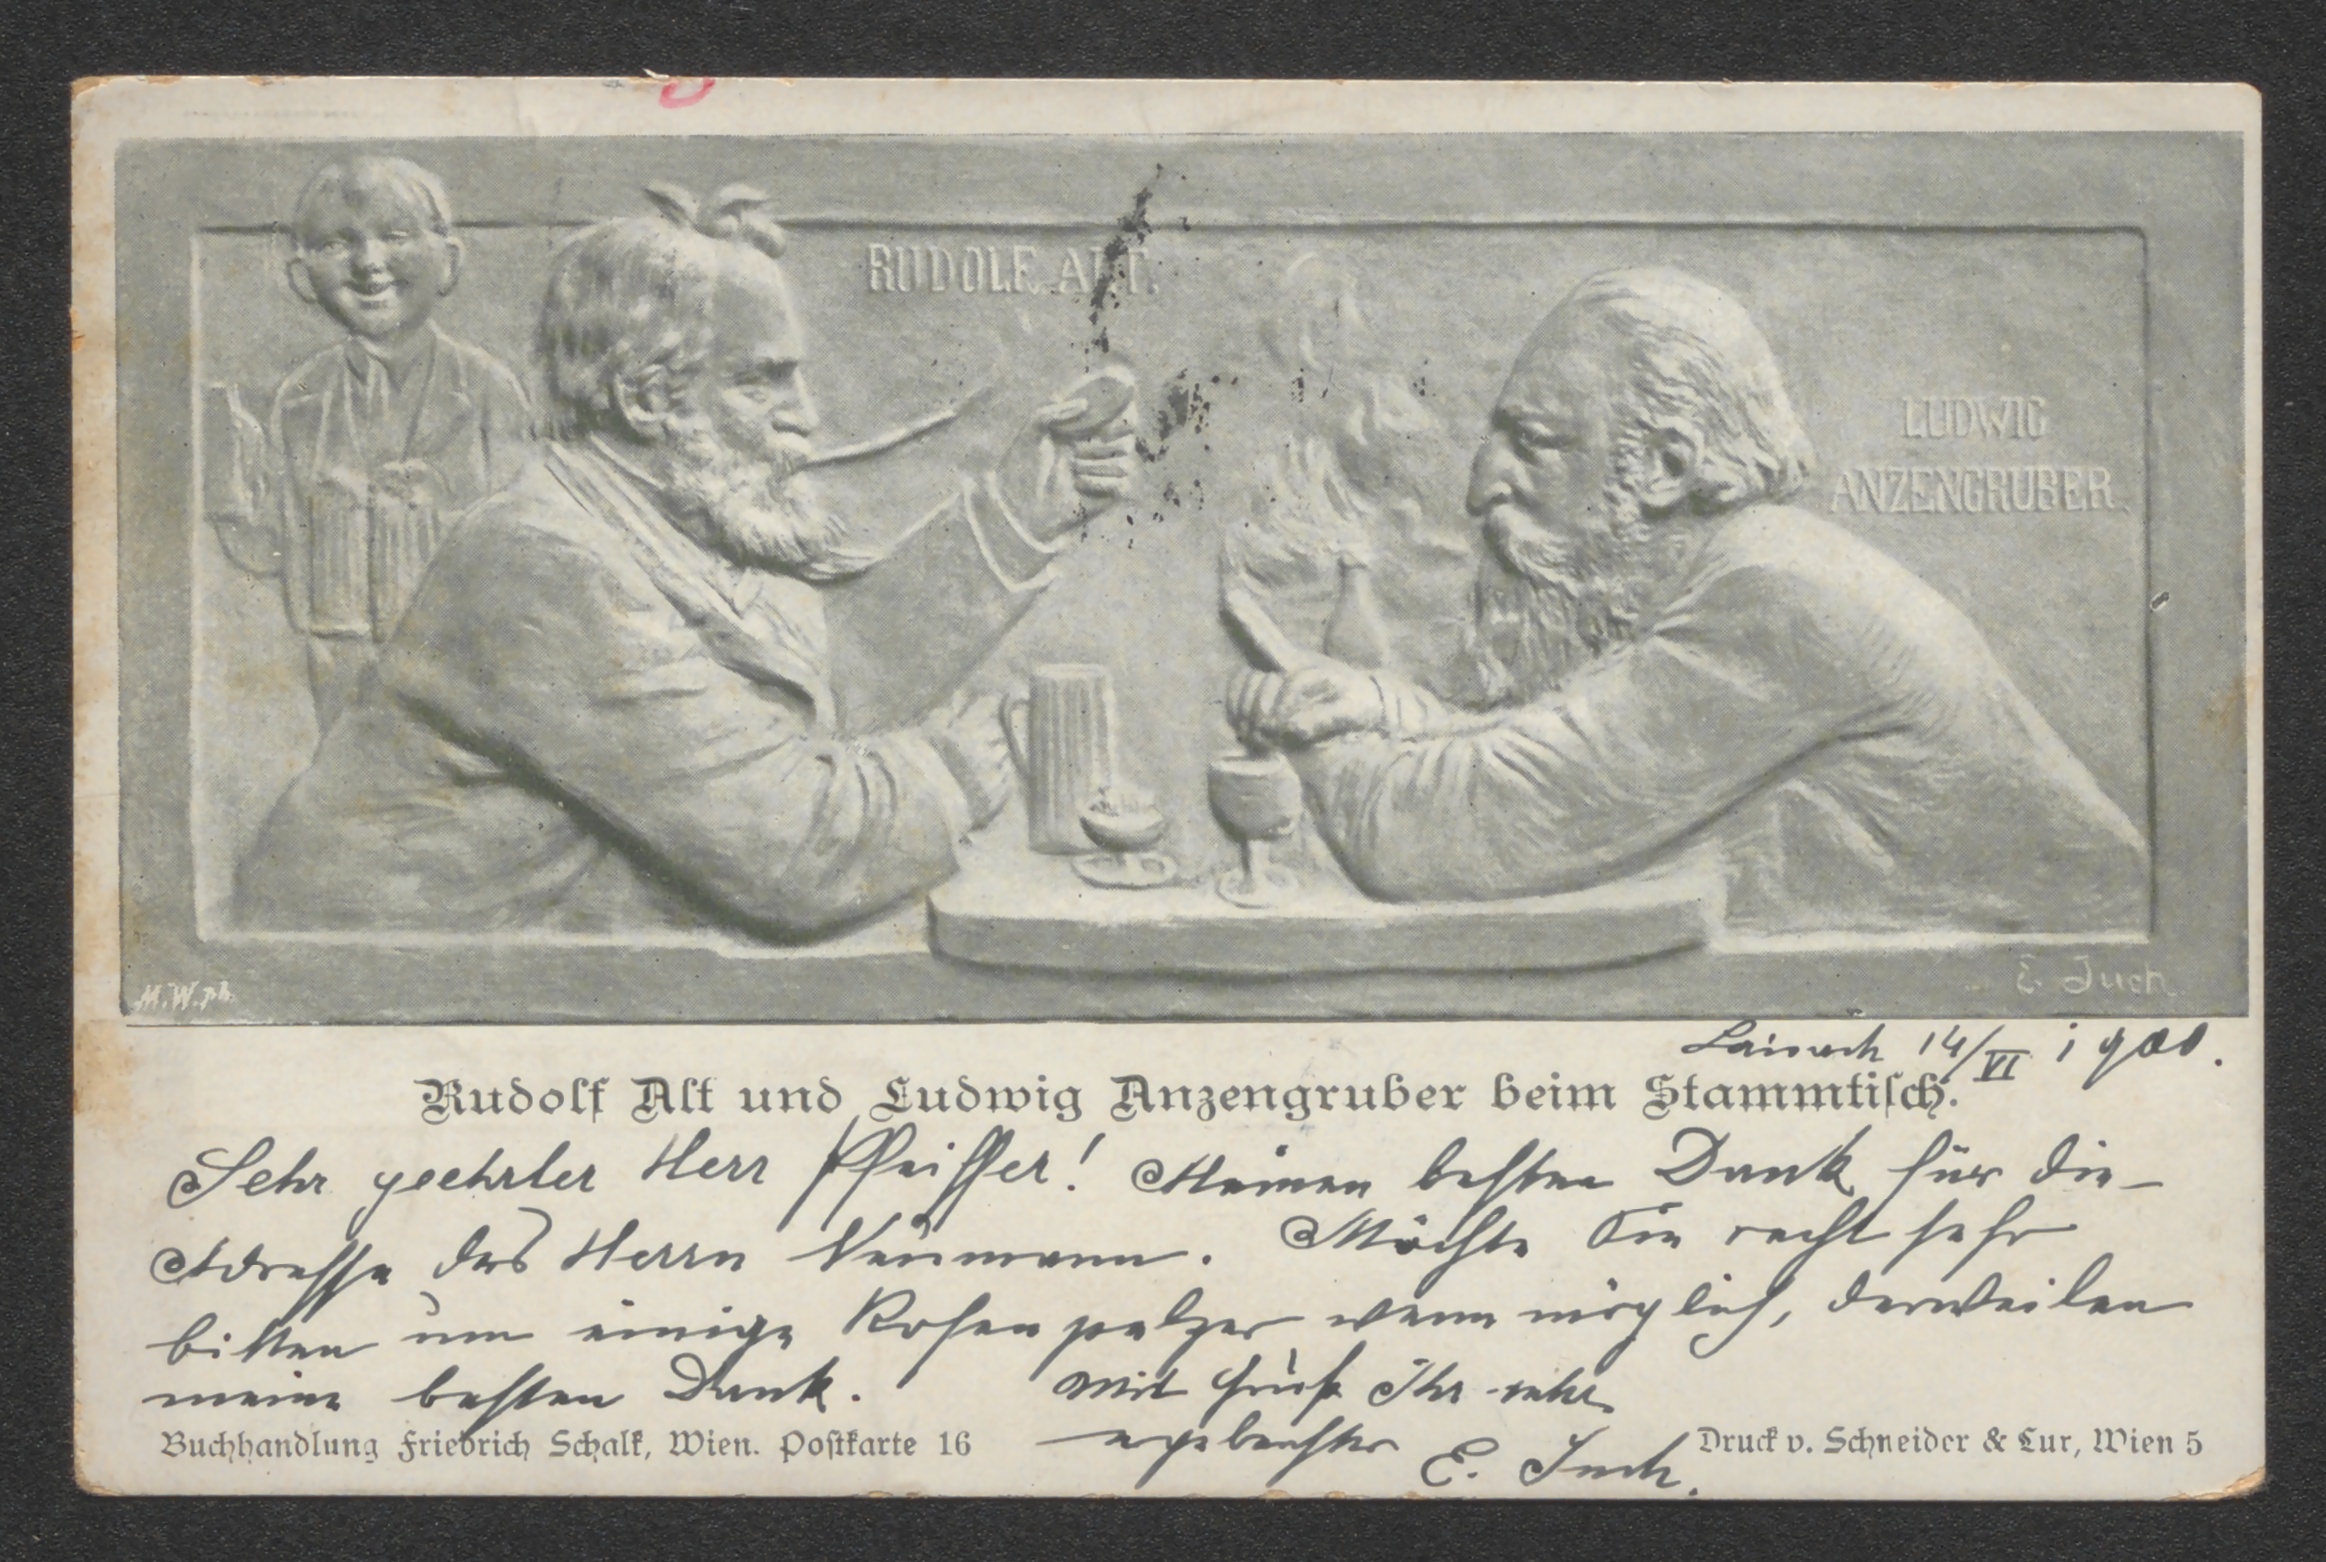 RUDOLF ALT.
LUDWIG
ANZENGRUBER.
M.W.ph.
E. Juch
14/VI 1900.
Rudolf Alt und Ludwig Anzengruber beim Stammtisch.
Sehr geehrter Herr Pfeiffer! Meinen besten Dank für die
Adresse des Herrn Neumann. Möchte Sie recht sehr
bitten um einige wenn möglich, derweilen
meine besten Dank. Mit Gruß Ihr sehr
ergebenster E. Juch.
Buchhandlung Friedrich Schalk, Wien. Postkarte 16
Druck v. Schneider & Lux, Wien 5